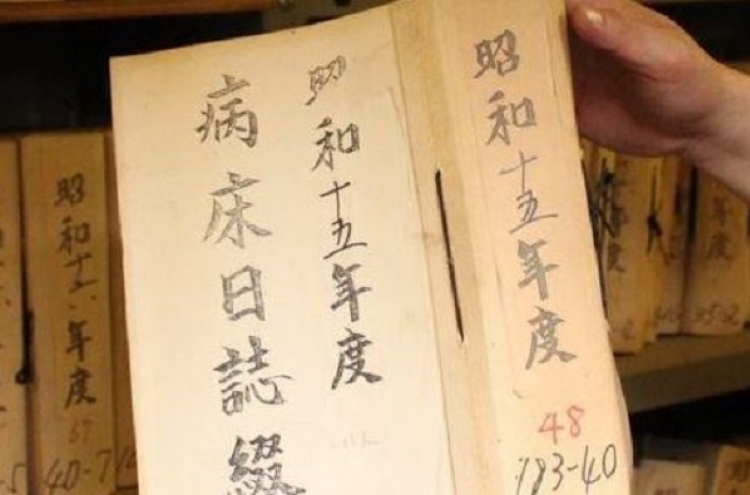 昭和十五年度
48
183-40
昭和十五年度
病床日誌綴
昭和十六年度
67
40-7